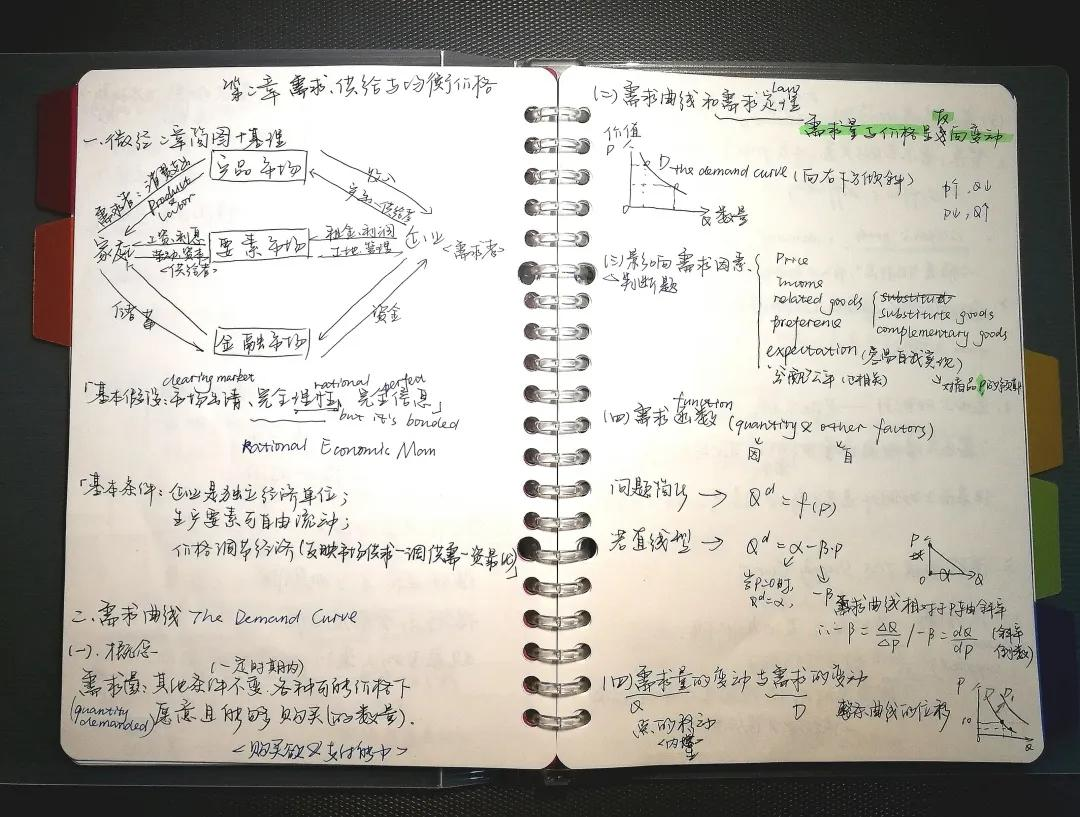 第二章 需求、供给与均衡价格
一、微经二章简图+基理
产品市场
需求者：消费支出
Product
Labor
供给者
家庭
工资、利息
劳动、资本
<供给者>
要素市场
租金、利润
土地、管理
企业
<需求者>
储蓄
金融市场
资金
clearing market rational perfect
「基本假设：市场出清、完全理性、完全信息」
but it's bonded
Rational Economic Man
「基本条件：企业是独立经济单位；
生产要素可自由流动；
价格调节经济(反映市场供求—调供需—资最优)」
二、需求曲线 The Demand Curve
(一)、概念
(一定时期内)
需求量：其他条件不变、各种可能价格下
(quantity demanded) 愿意且能够购买(的数量).
<购买欲&支付能力>
(二)需求曲线和需求定理
law
需求量与价格呈反向变动
价值
P
D-the demand curve (向右下方倾斜)
0
Q 数量
P↑，Q↓
P↓，Q↑
(三)影响需求因素
△判断题
Price
income
related goods
substitute goods
complementary goods
preference
expectation (容易自我实现)
↘对商品P的预期
分配公平 (正相关)
function
(四)需求函数 (quantity & other factors)
因 自
问题简化 → Qᵈ = f(P)
若直线型 → Qᵈ = α-β·P
当P=0时，
Qᵈ=α，
-β
P
0
α
Q
需求曲线相对于P轴斜率
∴-β = ΔQ/ΔP / -β = dQ/dP (斜率倒数)
(四)需求量的变动与需求的变动
Q D
点的移动
<内生>
曲线的位移
P
10
Q